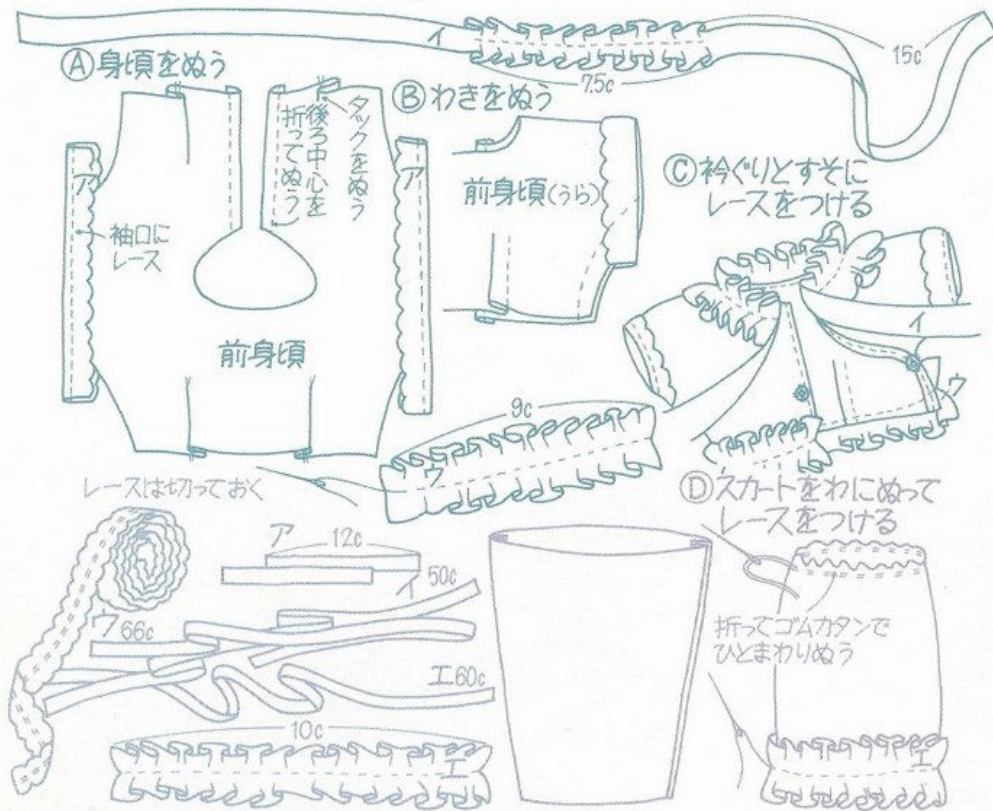 イ
7.5c
15c
Ⓐ身頃をぬう
タックをぬう
後ろ中心を
折ってぬう
ア
ア
袖口に
レース
前身頃
Ⓑわきをぬう
前身頃(うら)
Ⓒ衿ぐりとすそに
レースをつける
イ
ウ
9c
ウ
レースは切っておく
ア
12c
イ
50c
ウ66c
エ60c
10c
エ
Ⓓスカートをわにぬって
レースをつける
折ってゴムカタンで
ひとまわりぬう
エ